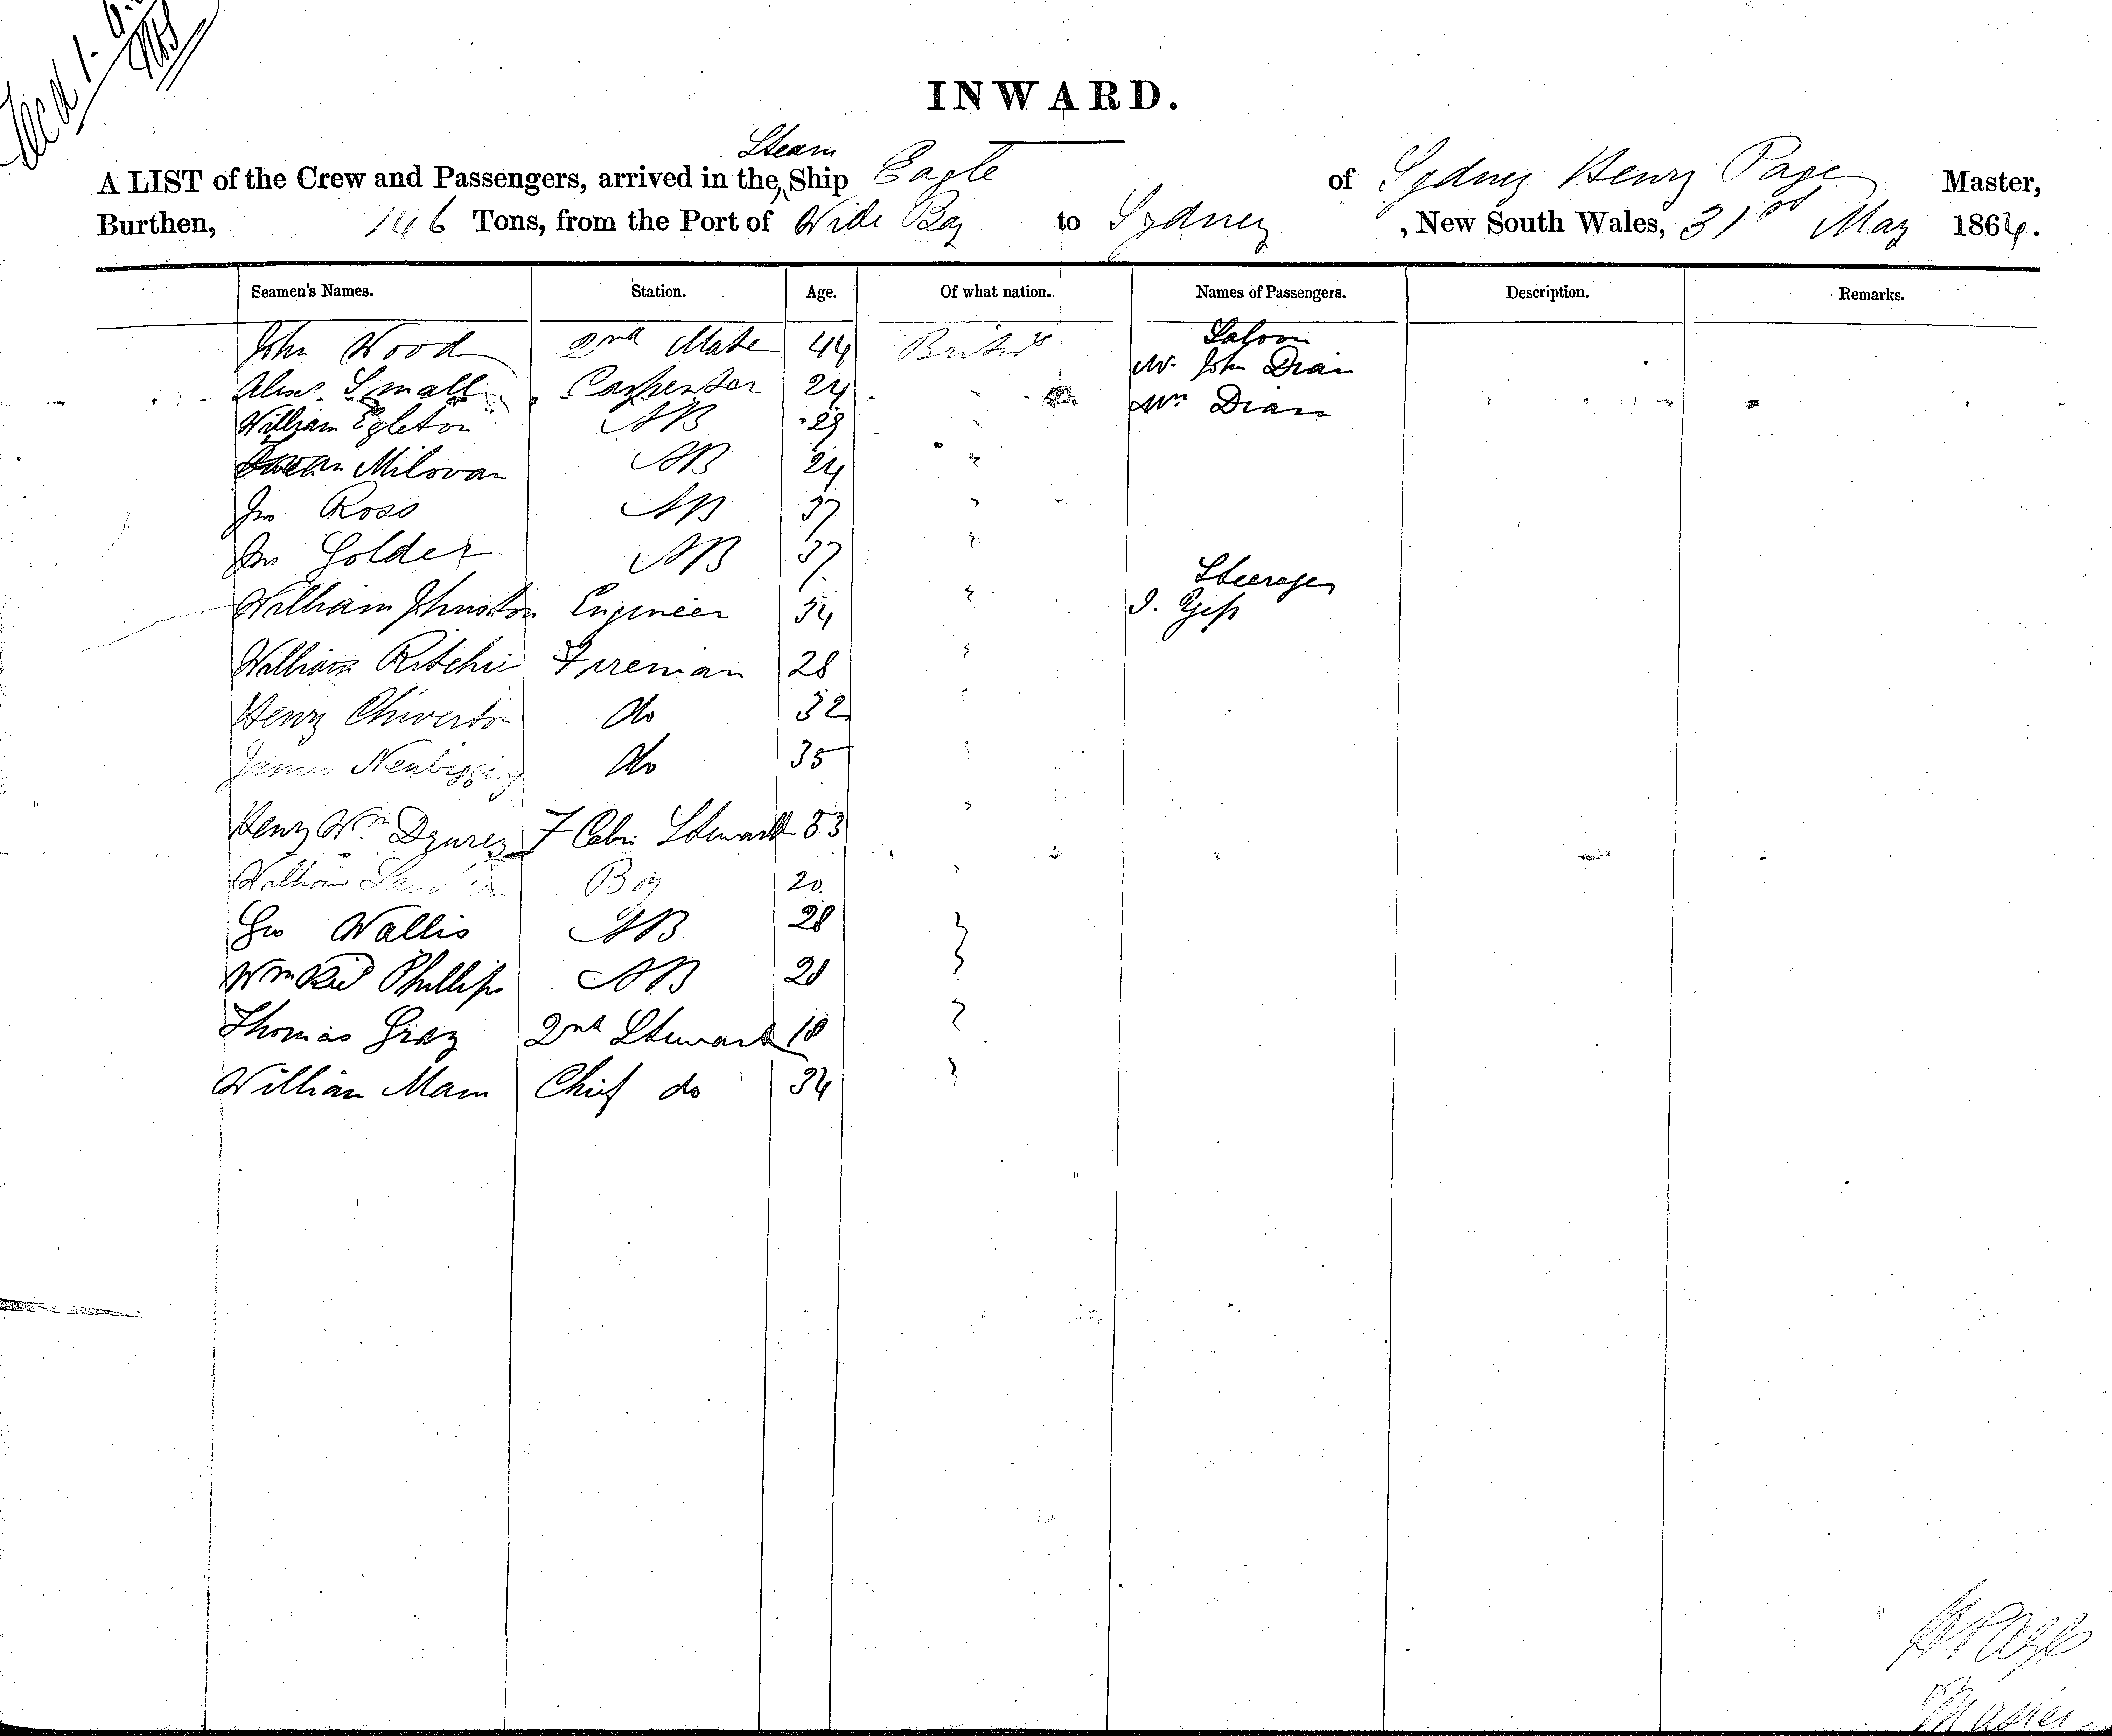 INWARD.
Steam
A LIST of the Crew and Passengers, arrived in the Ship Eagle of Sydney Henry Page Master,
Burthen, 146 Tons, from the Port of Wide Bay to Sydney , New South Wales, 31st May 1864.
Seamen's Names. Station. Age. Of what nation. Names of Passengers. Description. Remarks.
John Wood 2nd Mate 44 British Saloon
Mr. John Dian
Small Carpenter 24 " Dian
William Egleton AB 29 "
Milovan AB 24 "
Jno Ross AB 37 "
Jno Golder AB 37 "
Steerage
William Johnston Engineer 34 "
William Ritchie Fireman 28 "
Henry Chiverton do 32 "
James Newbigging do 35 "
Henry Wm F Cabin Steward 53 "
William Boy 20 "
Geo Wallis AB 28 "
Wm Phillips AB 28 "
Thomas Gray 2nd Steward 18 "
William Mam Chief do 34 "
Page
Master